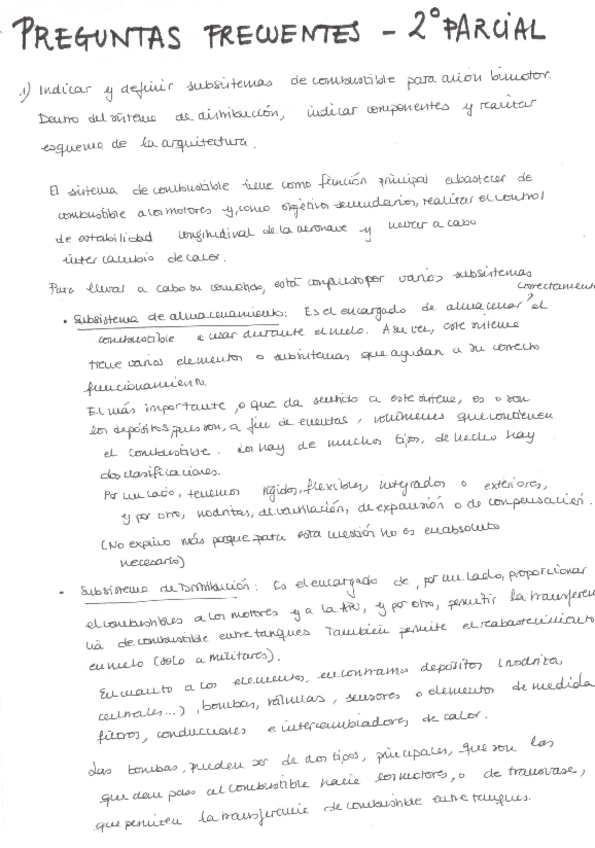 PREGUNTAS FRECUENTES - 2º PARCIAL
1) Indicar y definir subsistemas de combustible para avión bimotor.
Dentro del sistema de distribución, indicar componentes y realizar
esquema de la arquitectura.
El sistema de combustible tiene como función principal abastecer de
combustible a los motores y, como objetivos secundarios, realizar el control
de estabilidad longitudinal de la aeronave y llevar a cabo
intercambio de calor.
Para llevar a cabo su cometido, está compuesto por varios subsistemas
• Subsistema de almacenamiento: Es el encargado de almacenar correctamente el
combustible a usar durante el vuelo. A su vez, este sistema
tiene varios elementos o subsistemas que ayudan a su correcto
funcionamiento.
El más importante, o que da sentido a este sistema, es o son
los depósitos, pues son, a fin de cuentas, volúmenes que contienen
el combustible. Los hay de muchos tipos, de hecho hay
dos clasificaciones.
Por un lado, tenemos rígidos, flexibles, integrados o exteriores,
y por otro, nodrizas, de ventilación, de expansión o de compensación.
(No explico más porque para esta cuestión no es en absoluto
necesario)
• Subsistema de Distribución: Es el encargado de, por un lado, proporcionar
el combustibles a los motores y a la APU, y por otro, permitir la transferen
cia de combustible entre tanques. También permite el reabastecimiento
en vuelo (solo a militares).
En cuanto a los elementos, encontramos depósitos (nodriza,
centrales...), bombas, válvulas, sensores o elementos de medida
filtros, conducciones e intercambiadores de calor.
Las bombas, pueden ser de dos tipos, principales, que son las
que dan paso al combustible hacia los motores, o de transvase,
que permiten la transferencia de combustible entre tanques.